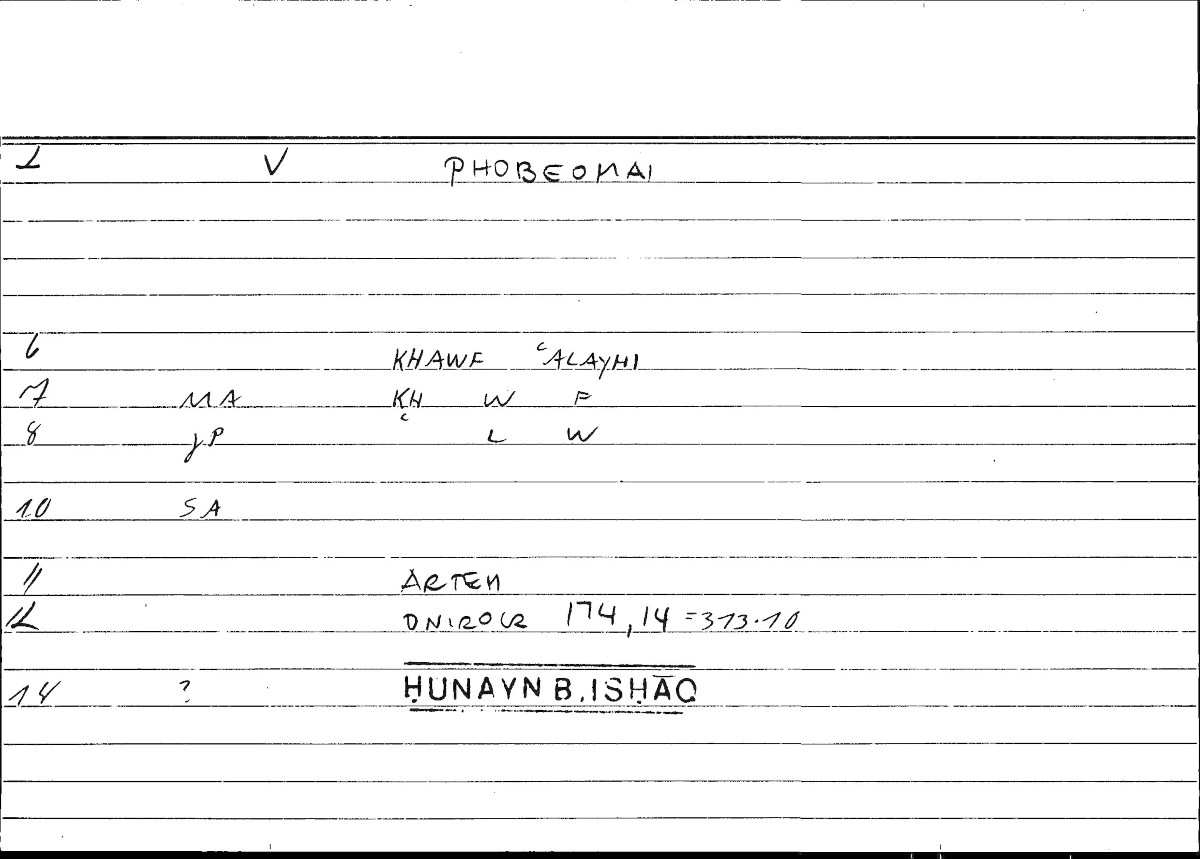 1 V PHOBEOMAI
6 KHAWF ʿALAYHI
7 MA KH W F
8 JP ʿ L W
10 SA
11 ARTEM
12 ONIROCR 174,14 =313.10
14 ? ḤUNAYN B. ISḤĀQ